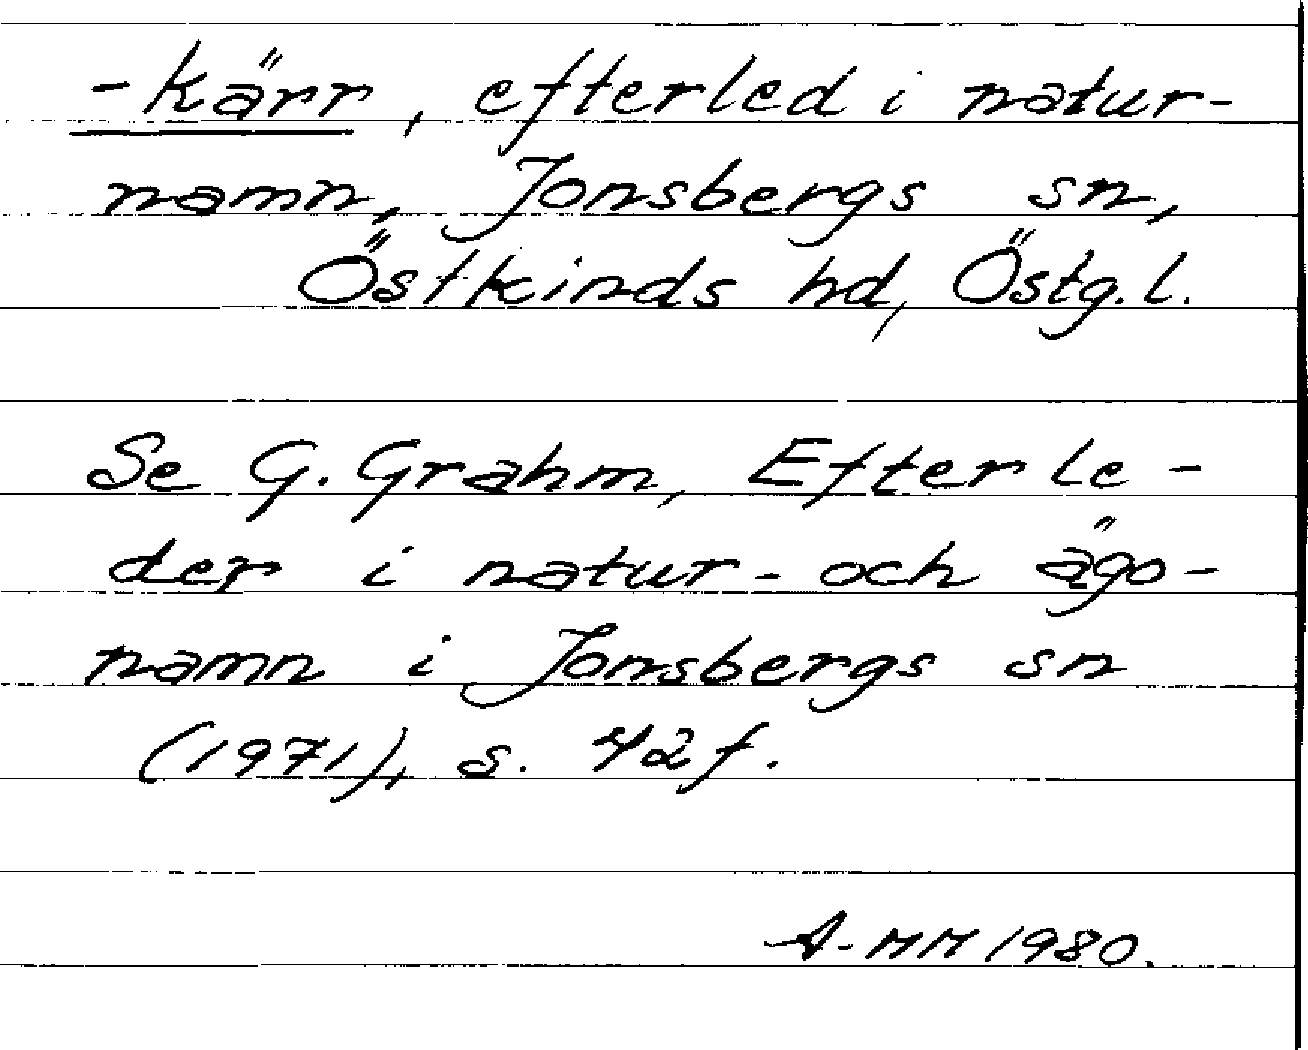 -kärr, efterled i natur-
namn, Jonsbergs sn,
Östkinds hd, Östg.l.
Se G. Grahm, Efterle-
der i natur- och ägo-
namn i Jonsbergs sn
(1971), s. 42 f.
A-MM 1980.